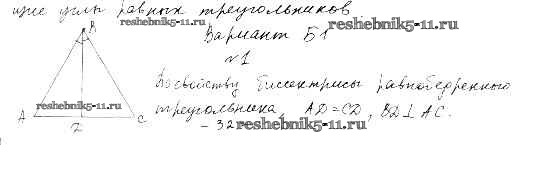 щие углы равных треугольников
reshebnik5-11.ru
reshebnik5-11.ru
Вариант Б1
№1
B
По свойству биссектрисы равнобедренного
reshebnik5-11.ru
треугольника AD=CD, BD⊥AC.
A
C
- 32 -
reshebnik5-11.ru